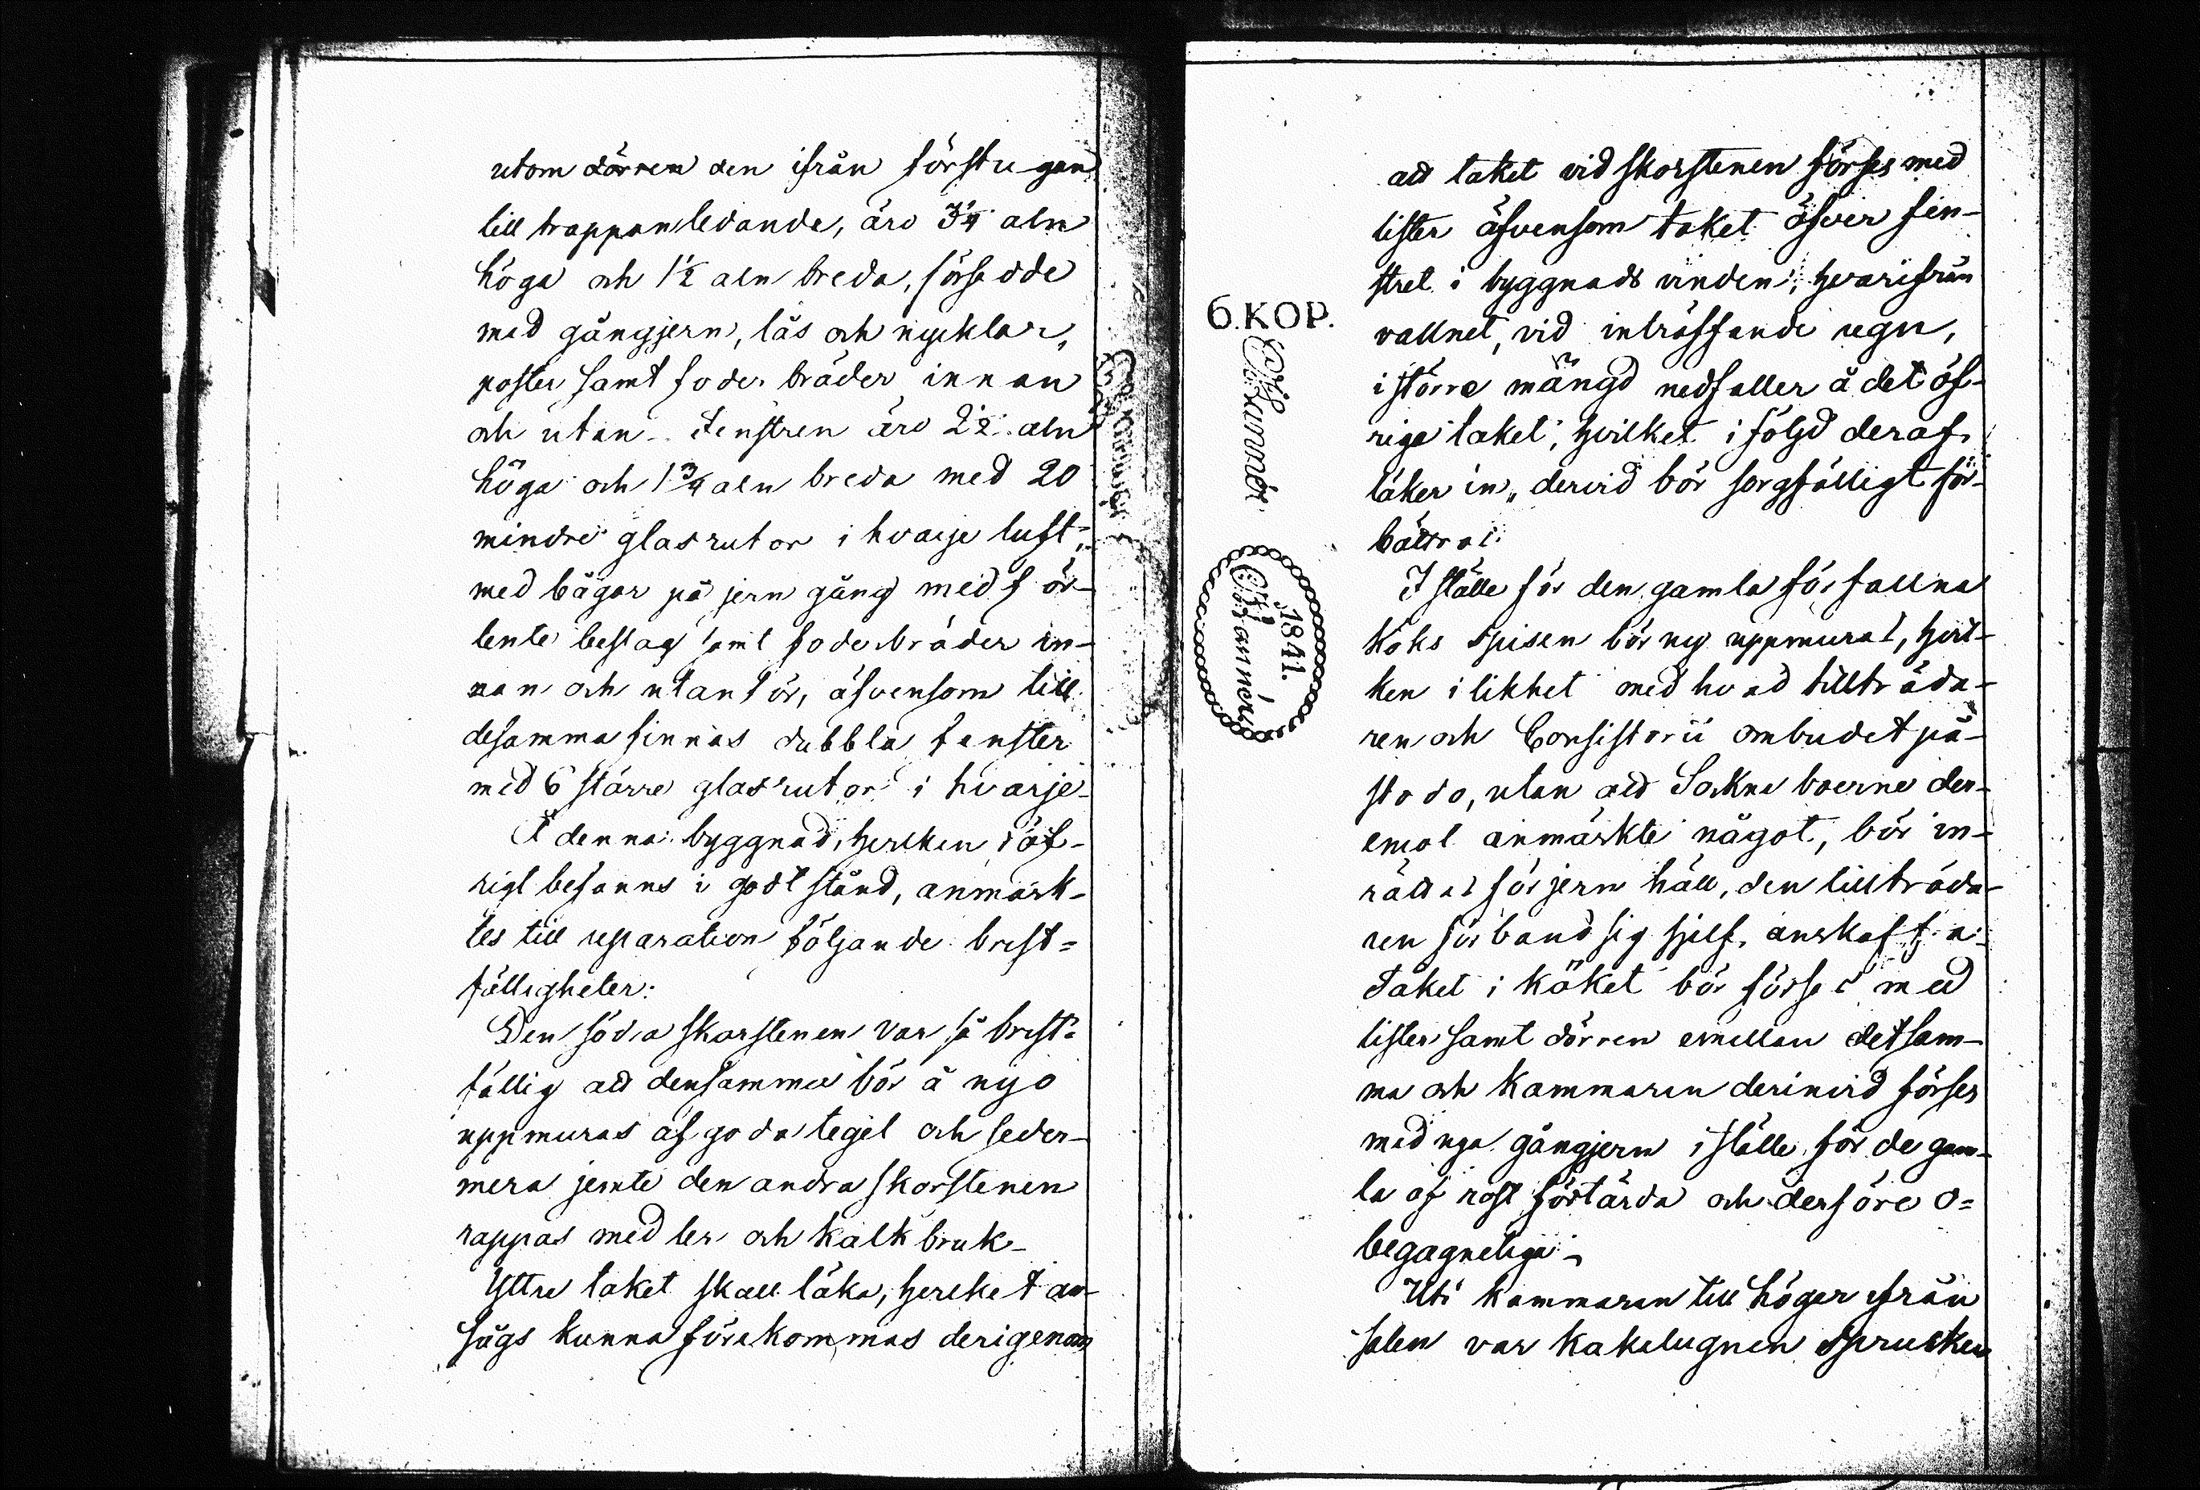 utom dörren den ifrån förstugan
till trappan ledande, äro 3¼ aln
höga och 1½ aln breda, försedde
med gångjern, lås och nycklar,
poster samt foder bräder innan
och utan. Fenstren äro 2½ aln
höga och 1¾ aln breda med 20
mindre glasrutor i hvarje luft,
med bågar på jern gång med för-
tente beslag samt foderbräder in-
nan och utanför, äfvensom till
desamma finnas dubbla fenster
med 6 större glasrutor i hvarje.
Å denna byggnad, hvilken i öf-
rigt befanns i godt stånd, anmärk-
tes till reparation följande brist-
fälligheter:
Den södra skorstenen var så brist-
fällig att densamma bör å nyo
uppmuras af goda tegel och seder-
mera jemte den andra skorstenen
rappas med ler och kalkbruk.
Yttre taket skall läka, hvilket an-
sågs kunna förekommas derigenom
6.KOP.
1841.
att taket vid skorstenen förses med
lister äfvensom taket öfver fen-
stret i byggnads vinden, hvarifrån
vattnet, vid inträffande regn,
i större mängd nedfaller å det öf-
riga taket, hvilket i följd deraf
läker in, dervid bör sorgfälligt för-
bättras.
I ställe för den gamla förfallna
köks spisen bör ny uppmuras, hvil-
ken i likhet med hvad tillträda-
ren och Consistorii ombudet på-
stodo, utan att Sockne boerne der-
emot anmärkte något, bör in-
rättas för jern häll, den tillträda-
ren förband sig sjelf anskaffa.
Taket i köket bör förses med
lister samt dörren emellan detsam-
ma och kammaren derinvid förses
med nya gångjern i ställe för de gam-
la af rost förtärda och derföre o-
begagneliga.
Uti kammaren till höger ifrån
salen var kakelugnen sprucken